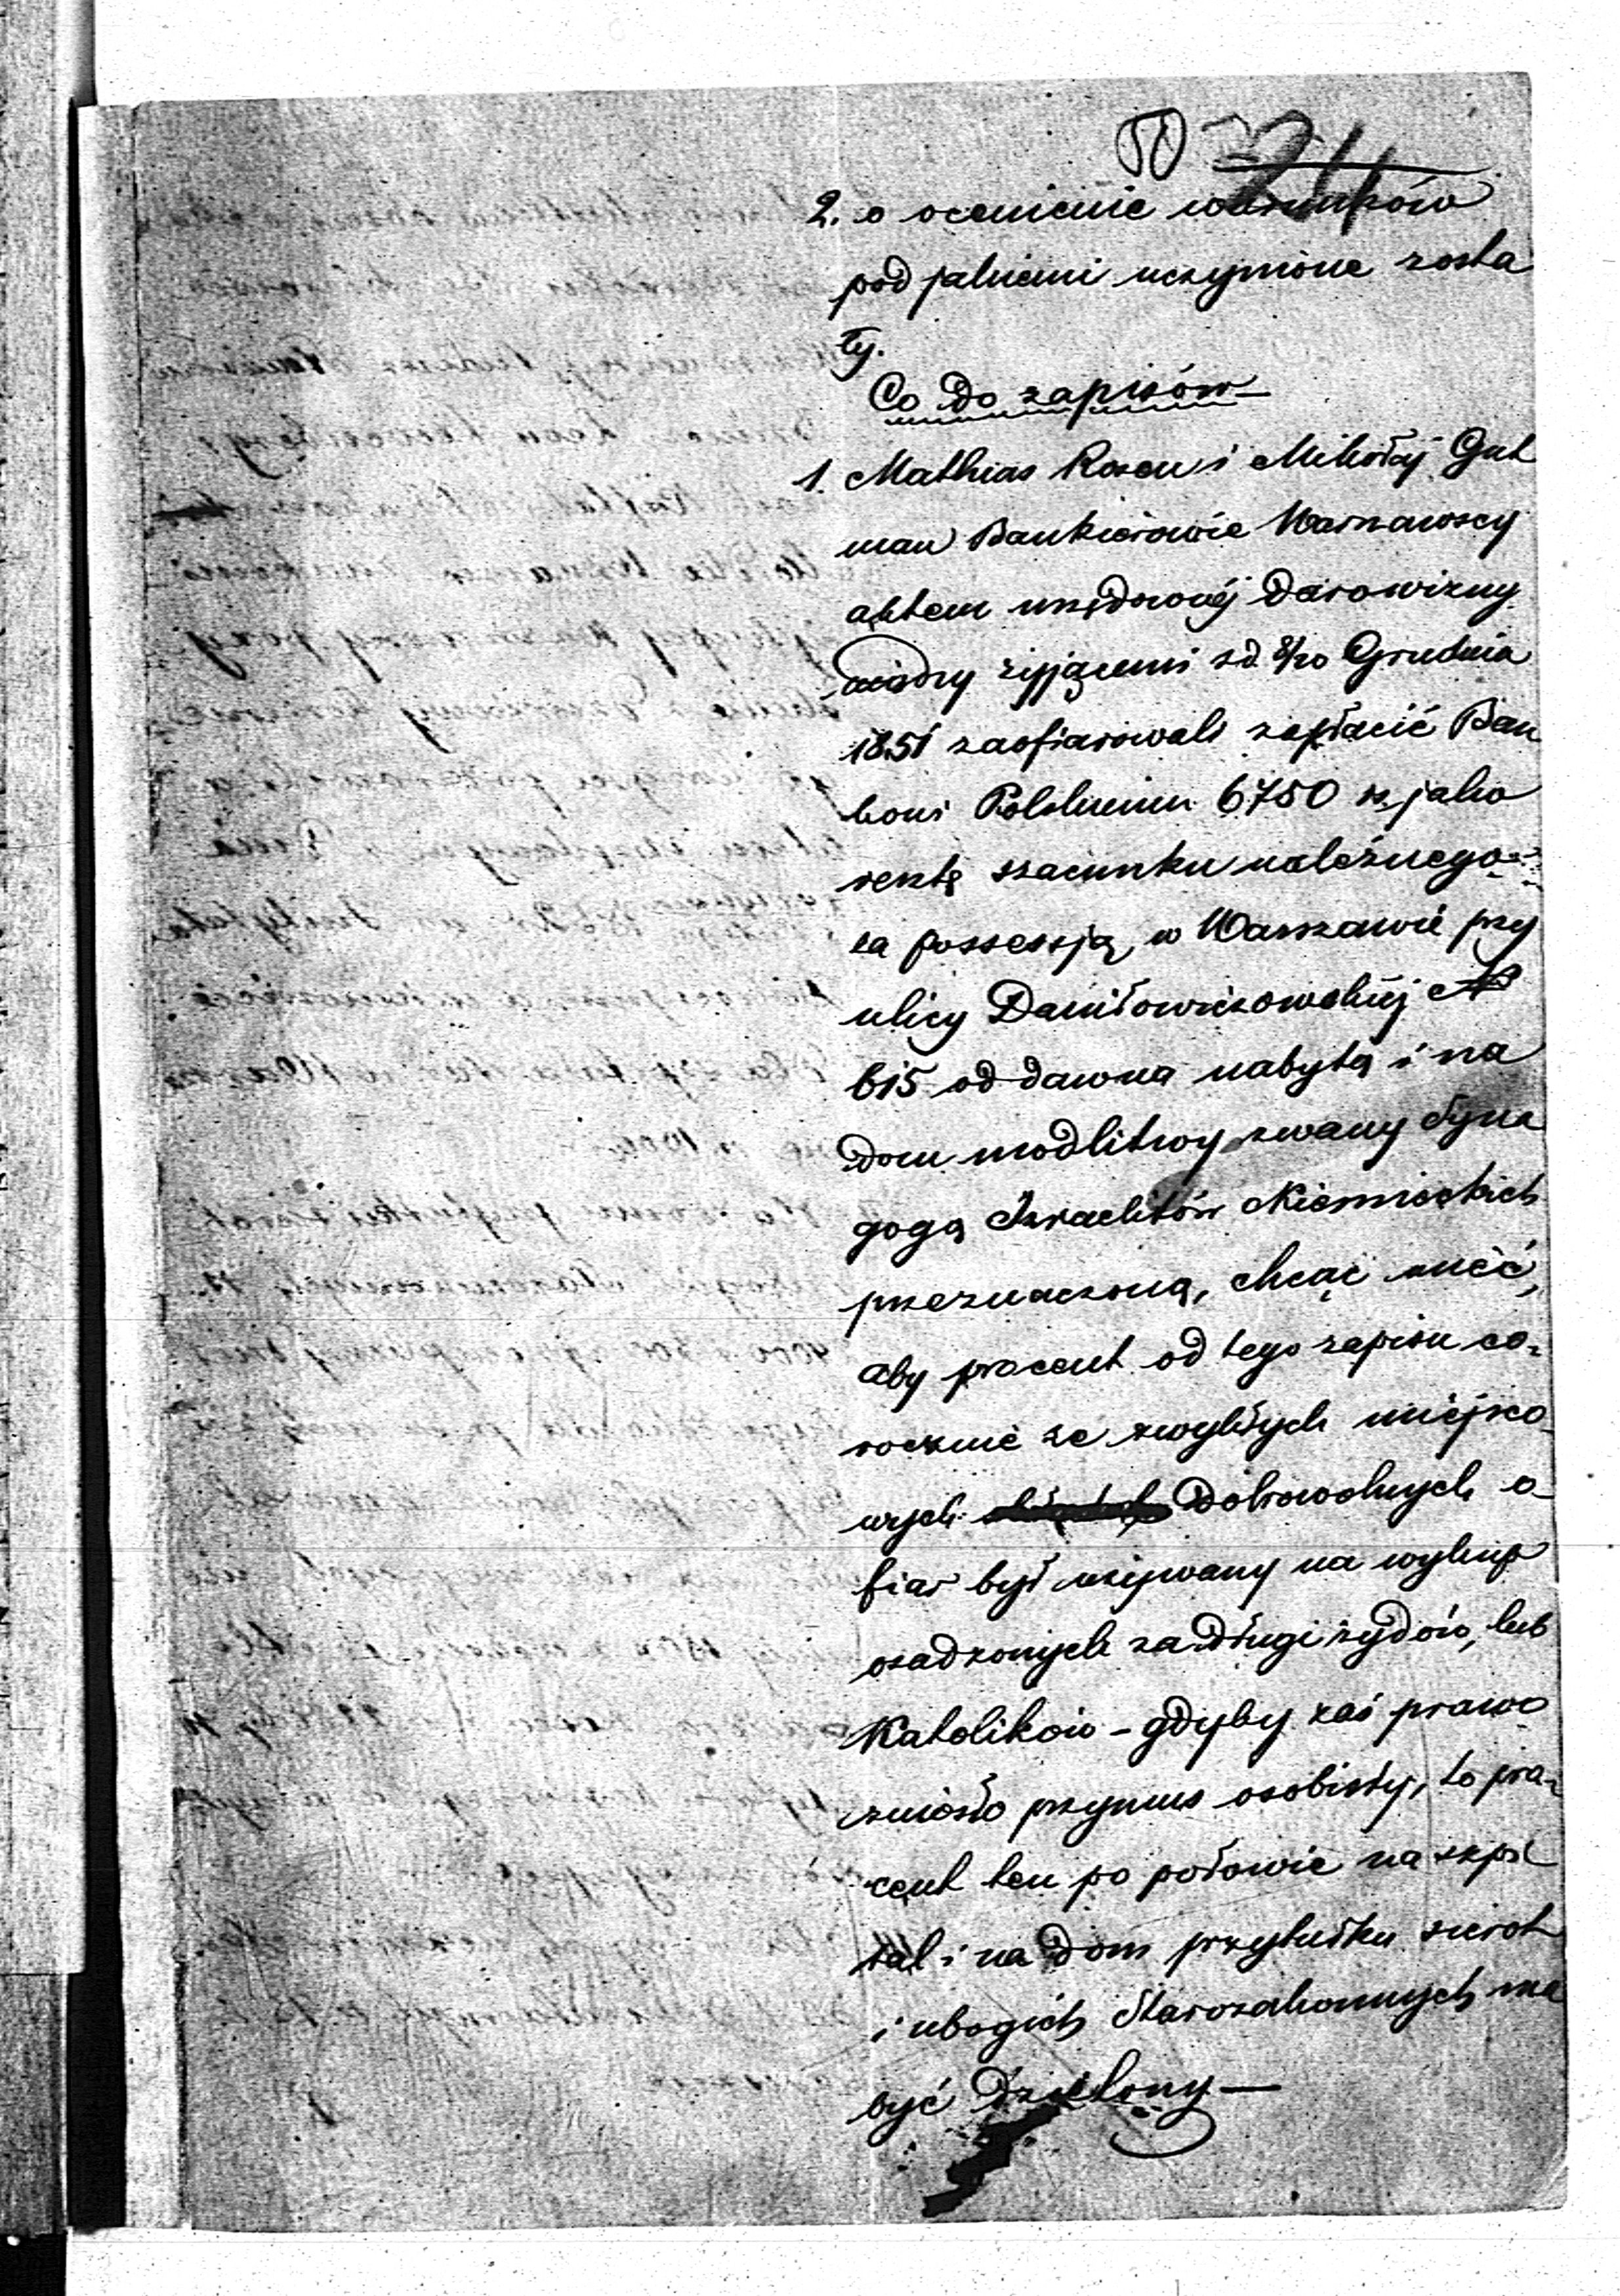 50 24
2. o ocenienie warunków
pod jakiemi uczynione zosta
ły.
Co do zapisów—
1. Mathias Rosen i Mikołaj Gut
man Bankierowie Warszawscy
aktem urzędowéj Darowizny
między żyjącemi z d. 8/20 Grudnia
1851 zaofiarowali zapłacić Ban
kowi Polskiemu 6750 rs jako
resztę szacunku należnego
za possessją w Warszawie przy
ulicy Daniłowiczowskiéj N
615 od dawna nabytą i na
dom modlitwy zwany Syna
gogą Izraelitów Niemieckich
przeznaczoną, chcąc mieć,
aby procent od tego zapisu co-
rocznie ze zwykłych miejsco
wych Dobrowolnych o-
fiar był używany na wykup
osadzonych za długi żydów, lub
Katolików – gdyby zaś prawo
zniosło przymus osobisty, to pro-
cent ten po połowie na szpi
tal i na Dom przytułku sierot
i ubogich Starozakonnych ma
być Dzielony—